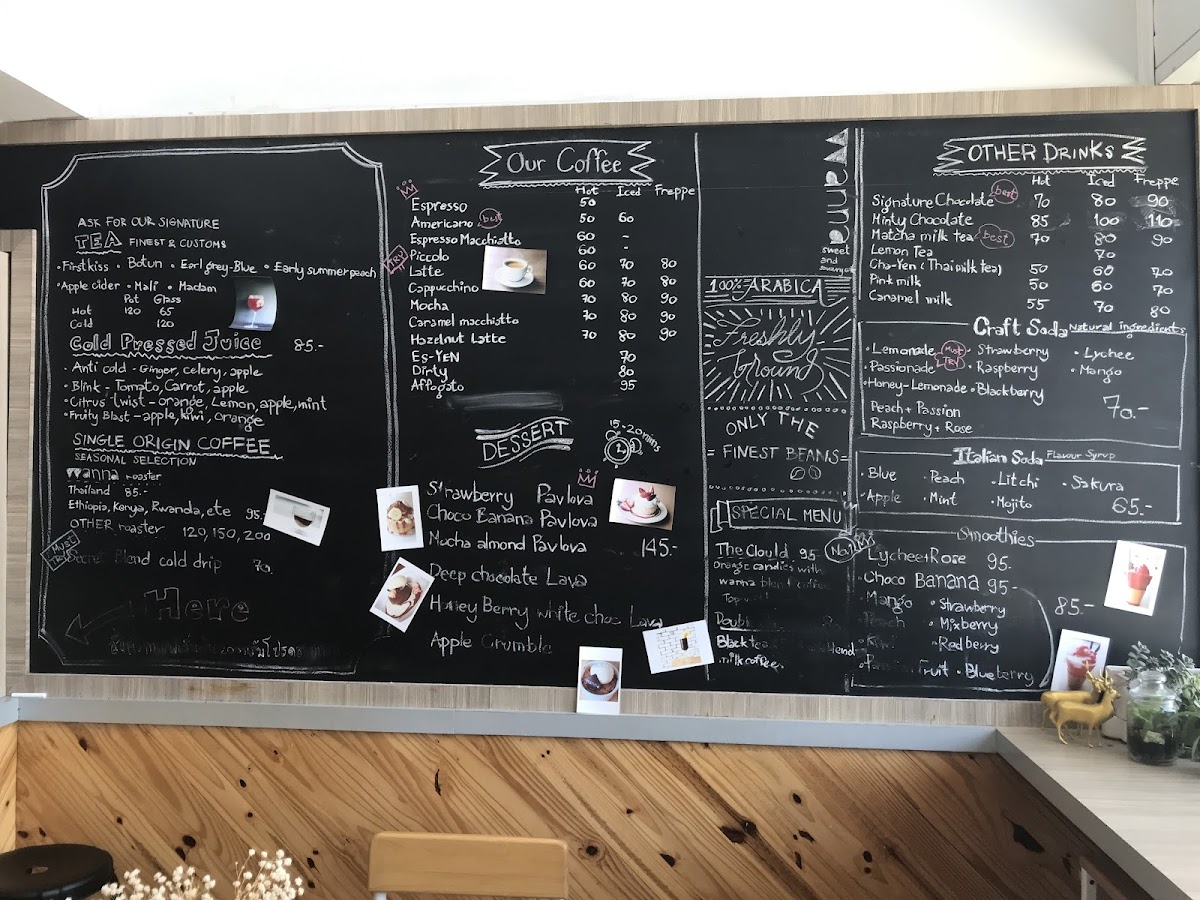 ASK FOR OUR SIGNATURE
TEA FINEST & CUSTOMS
• Firstkiss • Botun • Earl grey-Blue • Early summer peach
• Apple cider • Mali • Madam
Pot Glass
Hot 120 65
Cold 120
Cold Pressed Juice 85.-
• Anti cold - Ginger, celery, apple
• Blink - Tomato, Carrot, apple
• Citrus twist - orange, Lemon, apple, mint
• Fruity Blast - apple, kiwi, orange
SINGLE ORIGIN COFFEE
SEASONAL SELECTION
wanna roaster
Thailand 85.-
Ethiopia, Kenya, Rwanda, etc 95.
OTHER roaster 120, 150, 200
MUST TRY
Blend cold drip 70.
Here
Our Coffee
Hot Iced Freppe
Espresso 50
Americano best 50 60
Espresso Macchiatto 60 -
TRY
Piccolo 60 -
Latte 60 70 80
Cappucchino 60 70 80
Mocha 70 80 90
Caramel macchiatto 70 80 90
Hazelnut Latte 70 80 90
Es-YEN 70
Dirty 80
Affogato 95
DESSERT
15-20 mins
Strawberry Pavlova
Choco Banana Pavlova
Mocha almond Pavlova 145.-
Deep chocolate Lava
Honey Berry white choc Lava
Apple Crumble
wanna
sweet
and
100% ARABICA
Freshly
Ground
ONLY THE
= FINEST BEANS =
SPECIAL MENU
The Clould 95 No.1
Orange candies with
wanna
Black tea Blend
milk coffee
OTHER DRINKS
Hot Iced Freppe
Signature Chocolate best 70 80 90
Minty Chocolate 85 100 110
Matcha milk tea best 70 80 90
Lemon Tea 70
Cha-Yen (Thai milk tea) 50 60 70
Pink milk 50 60 70
Caramel milk 55 70 80
Craft Soda Natural ingredients
• Lemonade Must TRY • Strawberry • Lychee
• Passionade • Raspberry • Mango
• Honey-Lemonade • Blackberry
Peach + Passion 70.-
Raspberry + Rose
Italian Soda Flavour Syrup
• Blue • Peach • Litchi • Sakura
• Apple • Mint • Mojito 65.-
Smoothies
Lychee+Rose 95.
Choco BANANA 95-
• Mango • Strawberry 85.-
• Peach • Mixberry
• Kiwi • Redberry
Fruit • Blueberry